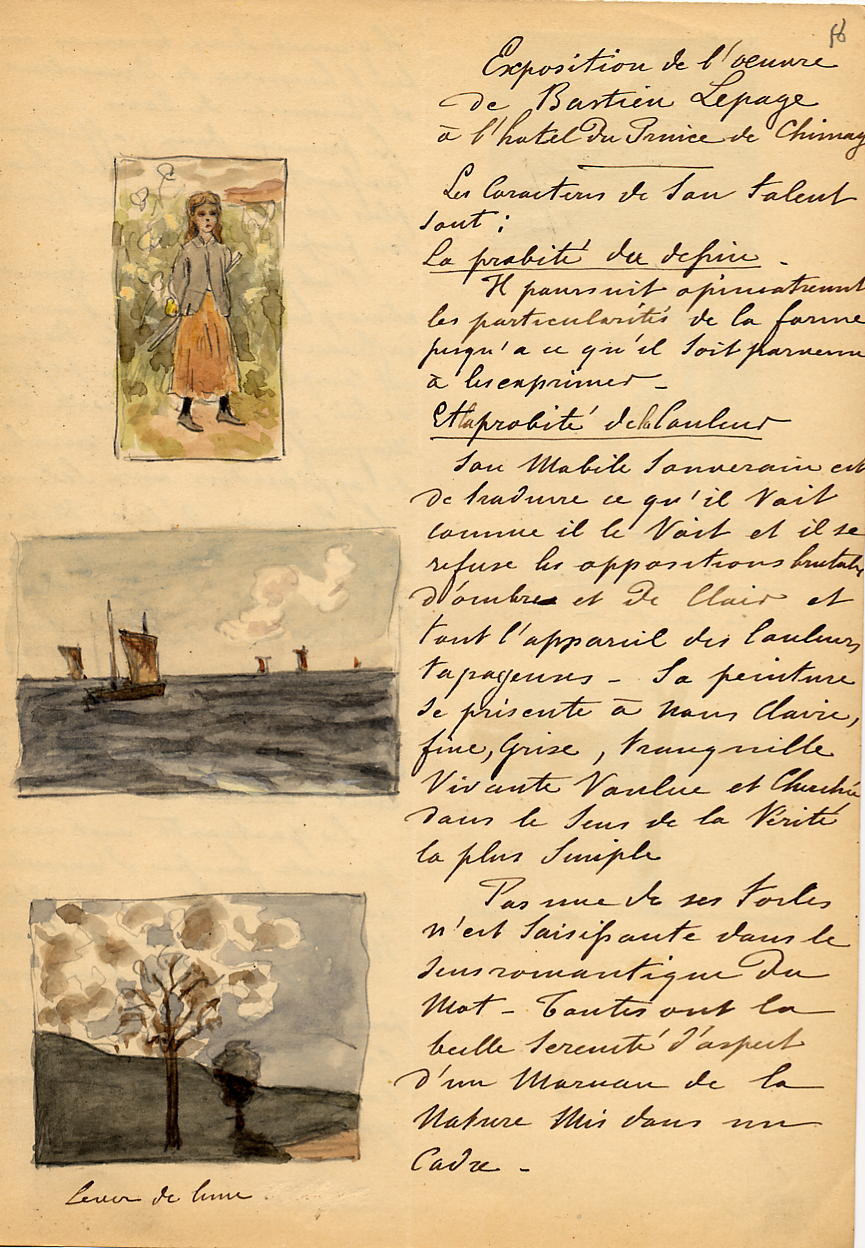 56
Exposition de l'oeuvre
de Bastien Lepage
à l'hotel du Prince de Chimay
Les Caracteres de Son talent
sont :
La probité du dessin -
Il poursuit opiniatrement
les particularités de la forme
jusqu'a ce qu'il soit parvenu
à les exprimer -
Et la probité de la Couleur
Son Mobile Souverain est
de traduire ce qu'il Voit
comme il le Voit et il se
refuse les oppositions brutales
d'ombre et de Clair et
tout l'appareil des Couleurs
tapageuses - Sa peinture
se présente à nous Claire,
fine, Grise, tranquille
Vivante Voulue et Cherchée
dans le Sens de la Vérité
la plus Simple
Pas une de ses toiles
n'est Saisissante dans le
Sens romantique du
Mot - Toutes ont la
belle Serenité d'aspect
d'un Morceau de la
Nature Mis dans un
Cadre -
Lever de lune